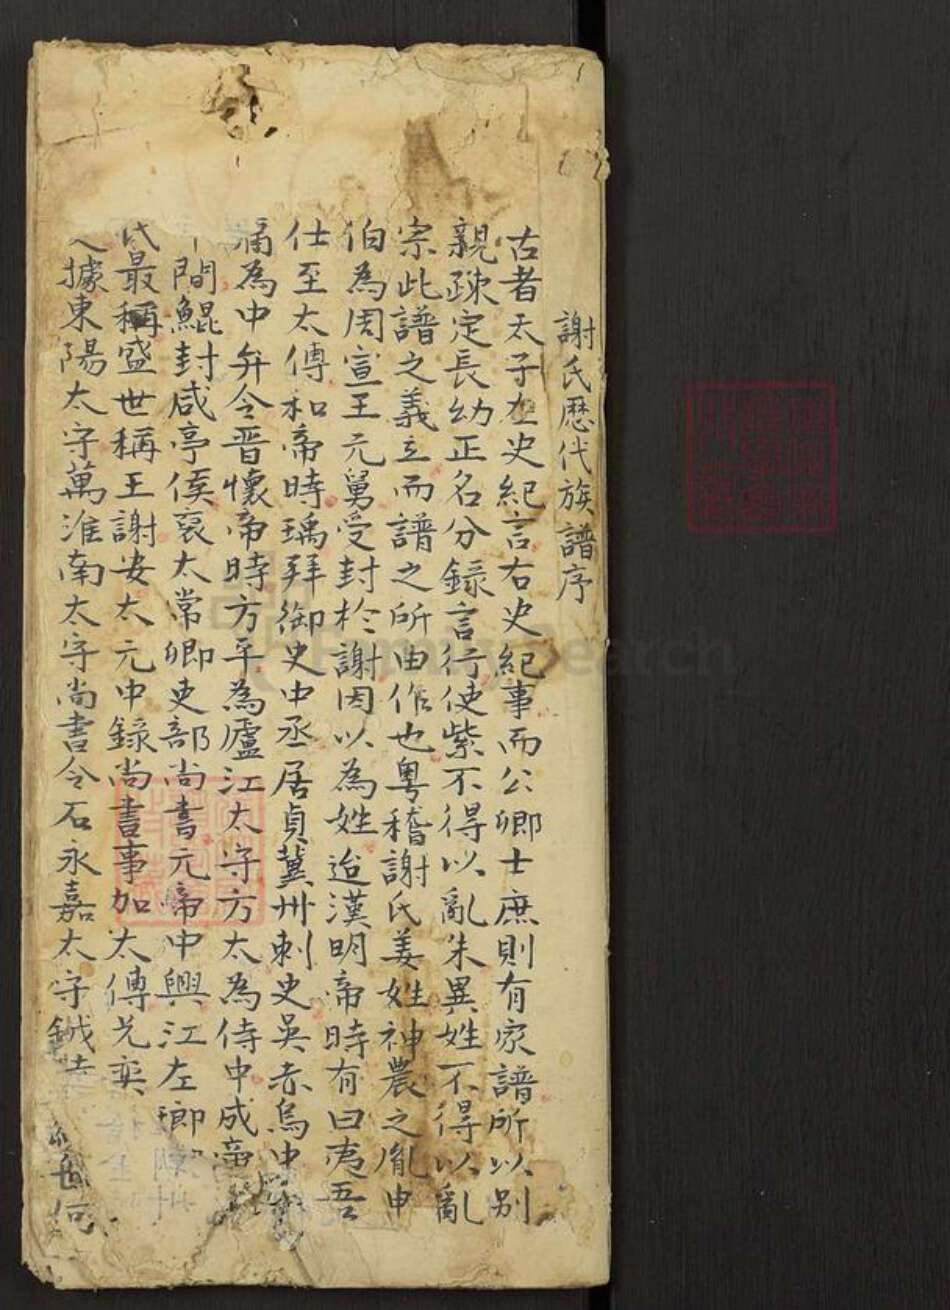 謝氏歷代族譜序
古者天子左史紀言右史紀事而公卿士庶則有家譜所以別
親疎定長幼正名分錄言行使紫不得以亂朱異姓不得以亂
宗此譜之義立而譜之所由作也粵稽謝氏姜姓神農之胤申
伯為周宣王元舅受封於謝因以為姓迨漢明帝時有曰夷吾
仕至太傅和帝時瑀拜御史中丞居貞冀州刺史吳赤烏中
為中弁令晋懷帝時方平為廬江太守方太為侍中成帝
間鯤封咸亭侯裒太常卿吏部尚書元帝中興江左瑯
氏最稱盛世稱王謝安太元中錄尚書事加太傅兄奕
據東陽太守萬淮南太守尚書令石永嘉太守鉞
FamilySearch